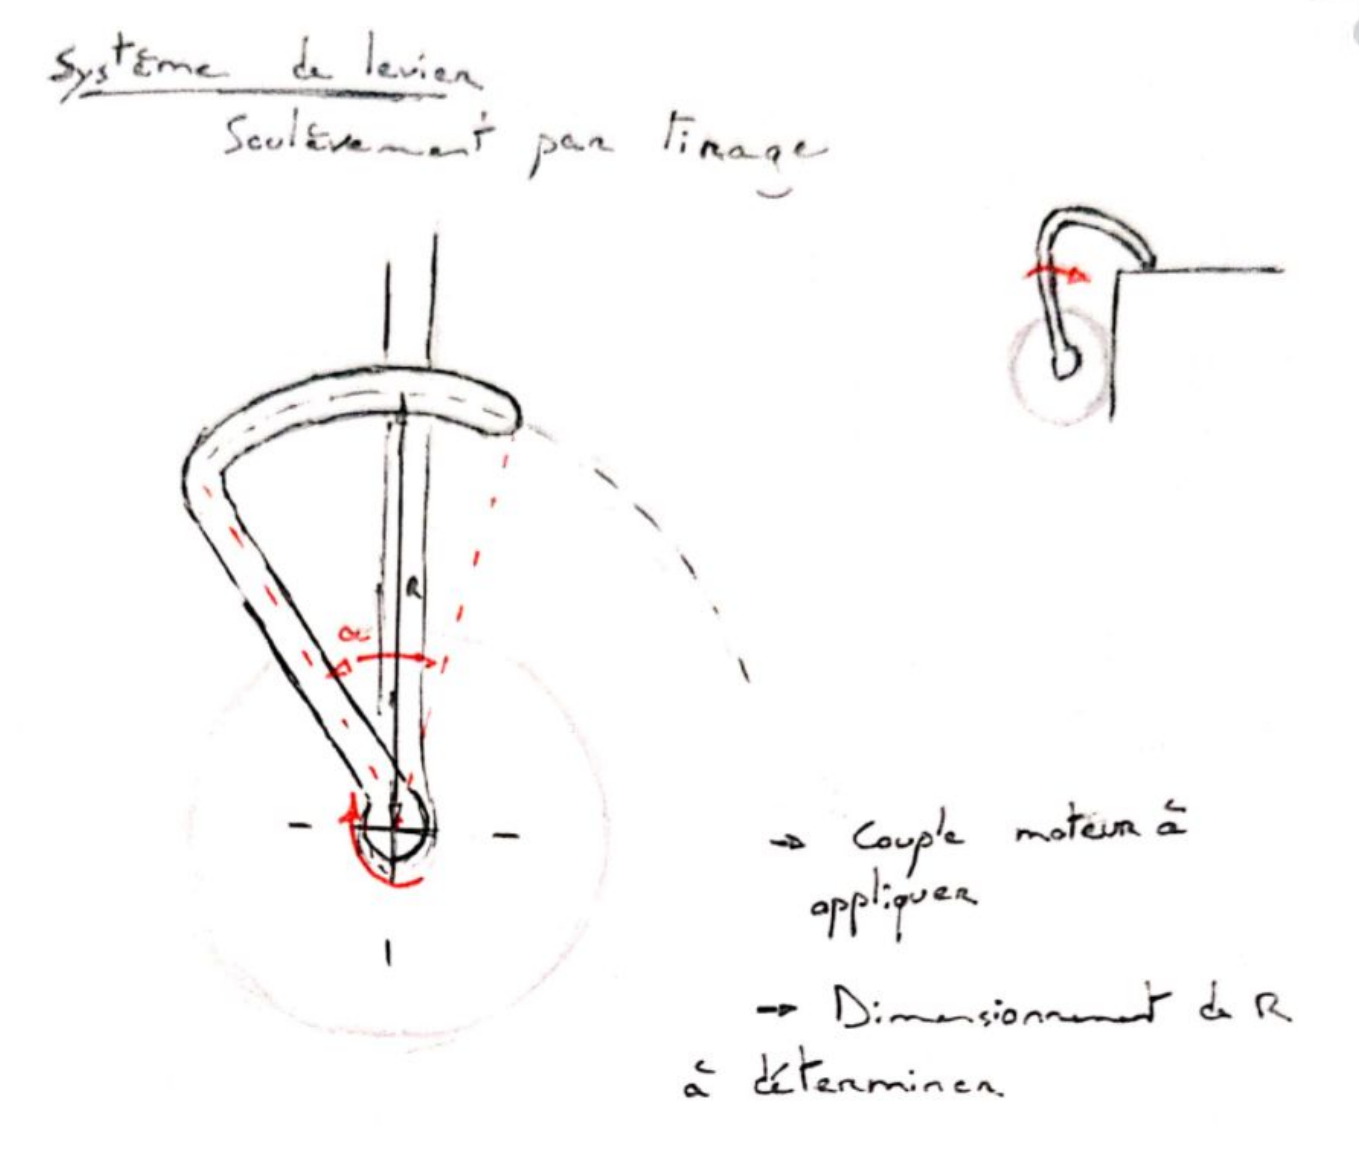 Système de levier
Soulèvement par tirage
R
α
→ Couple moteur à
appliquer
→ Dimensionnement de R
à déterminer